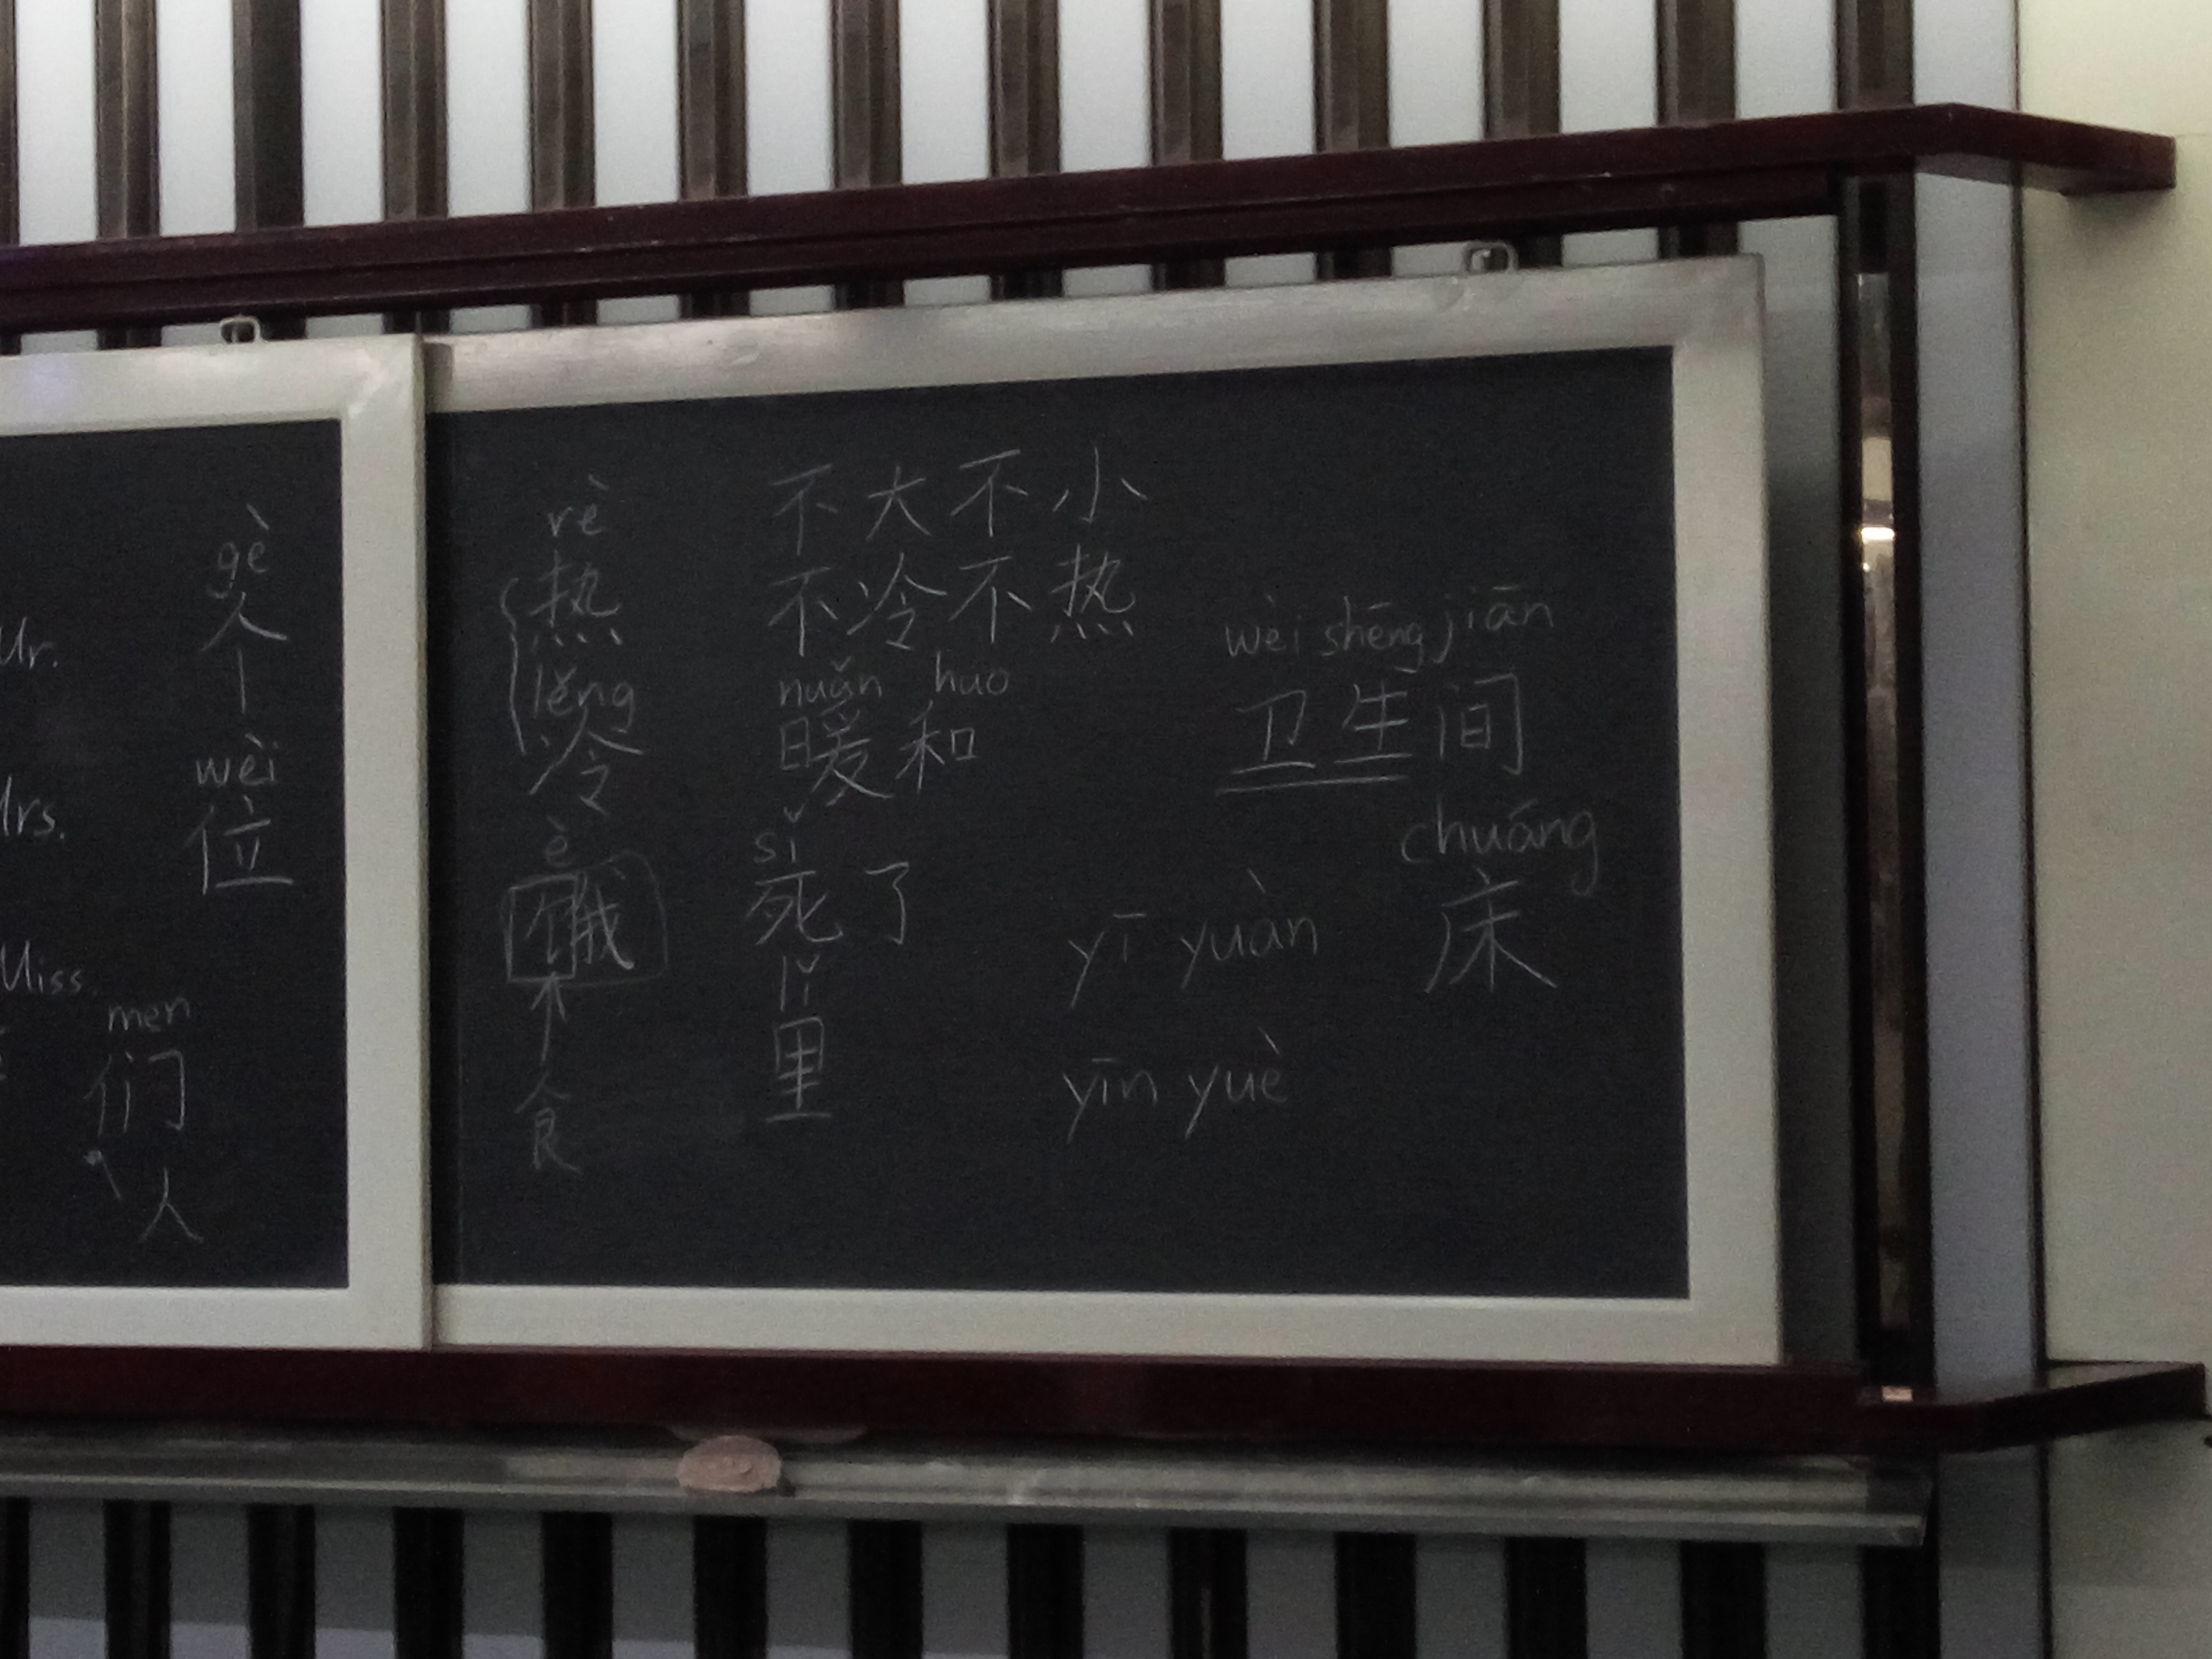 gè
个
wèi
位
Mr.
Mrs.
Miss.
men
们
人
rè
热
lěng
冷
è
饿
食
不大不小
不冷不热
nuǎn huo
暖和
sǐ
死了
lǐ
里
wèi shēng jiān
卫生间
chuáng
床
yī yuàn
yīn yuè